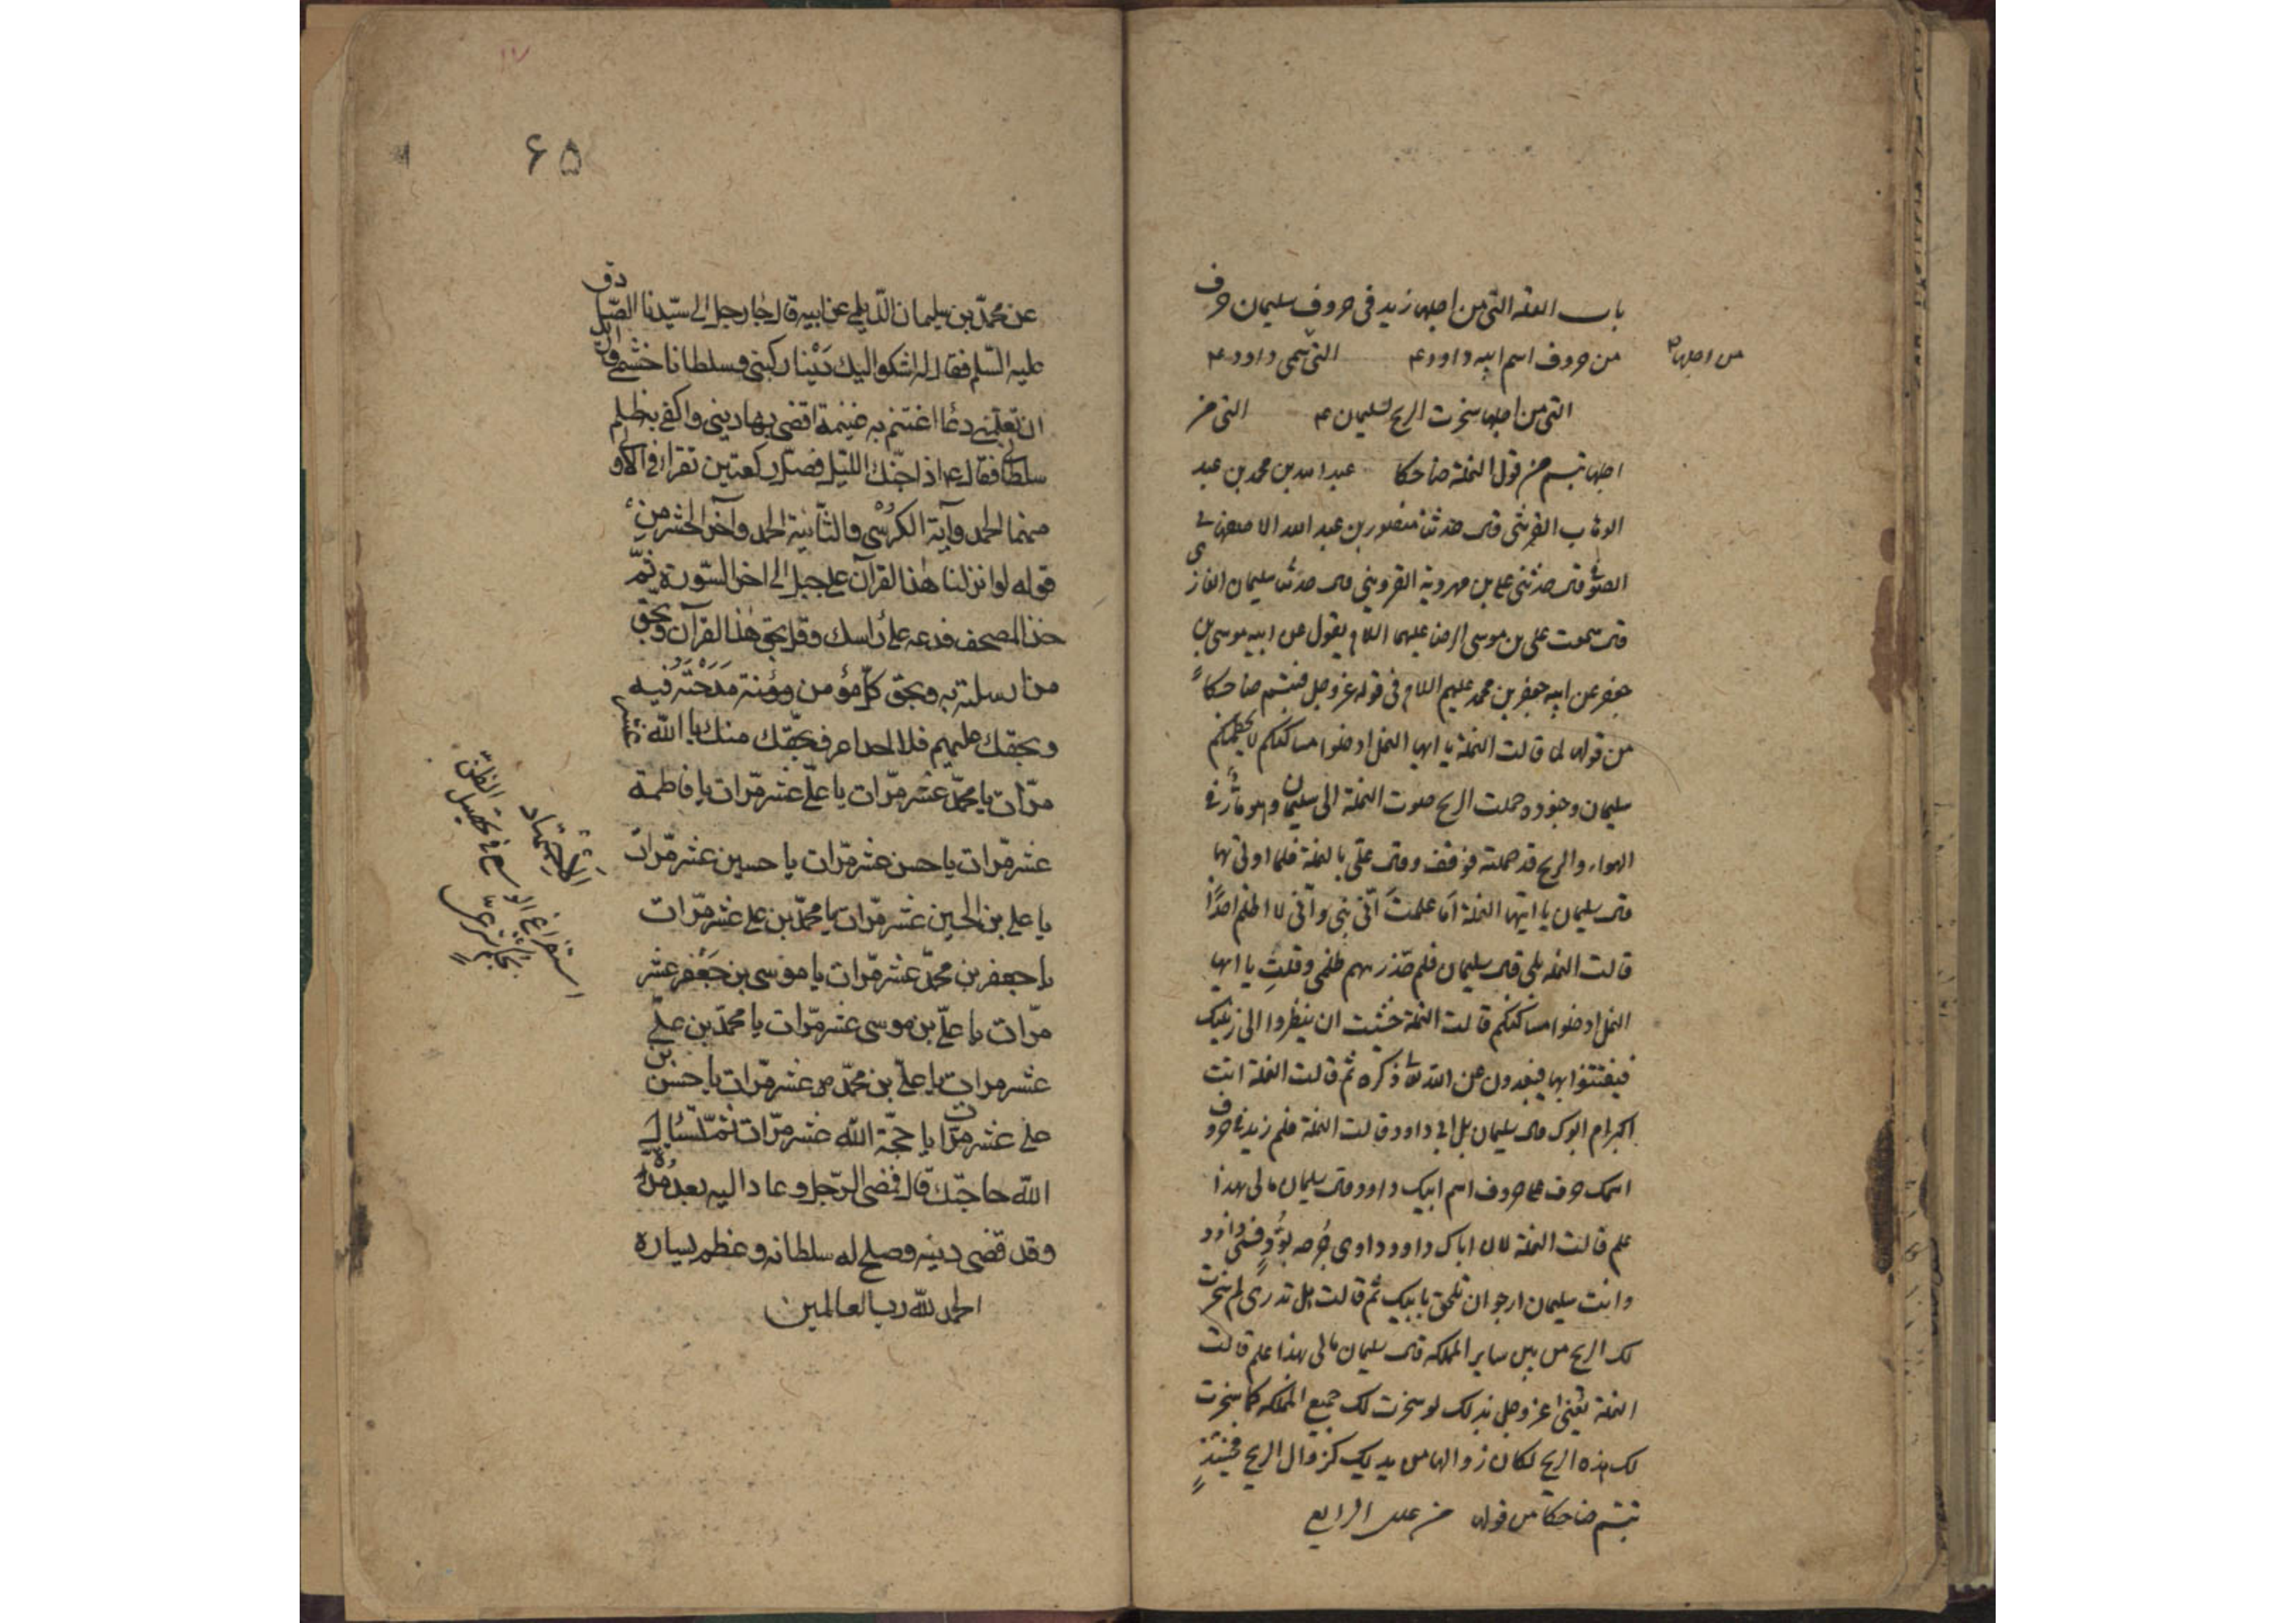 باب العلة التي من اجلها زيد في حروف سليمان حرف
من حروف اسم ابيه داود ع التي سمي داود ع
من اجلها
التي من اجلها سخرت الريح لسليمان ع التي من
اجلها تبسم من قول النملة ضاحكا عبد الله بن محمد بن عبد
الوهاب القرشي قال حدثنا منصور بن عبد الله الاصفهاني
الصوفي قال حدثني علي بن مهروية القزويني قال حدثنا سليمان الغازي
قال سمعت علي بن موسى الرضا عليهما السلام يقول عن ابيه موسى بن
جعفر عن ابيه جعفر بن محمد عليهم السلام في قوله عز وجل فتبسم ضاحكاً
من قولها لما قالت النملة يا ايها النمل ادخلوا مساكنكم لا يحطمنكم
سليمان وجنوده حملت الريح صوت النملة الى سليمان وهو مارّ في
الهواء والريح قد حملته فوقف وقال عليّ بالنملة فلما اوتي بها
قال سليمان يا ايتها النملة اما علمتَ انّي نبي وانّي لا اظلم احدًا
قالت النملة بلى قال سليمان فلم حذرتهم ظلمي وقلتِ يا ايها
النمل ادخلوا مساكنكم قالت النملة خشيت ان ينظروا الى زينتك
فيفتتنوا بها فيبعدون عن الله تعالى ذكره ثم قالت النملة انت
اكبر ام ابوك قال سليمان بل ابي داود قالت النملة فلم زيد في حروف
اسمك حرف على حروف اسم ابيك داود قال سليمان مالي بهذا
علم قالت النملة لان اباك داود داوى جُرحه بوُدٍّ فسمي داود
وانت سليمان ارجو ان تلحق بابيك ثم قالت هل تدري لم سخرت
لك الريح من بين ساير المملكة قال سليمان مالي بهذا علم قالت
النملة يعني عز وجل بذلك لو سخرت لك جميع المملكة كما سخرت
لك هذه الريح لكان زوالها من يديك كزوال الريح فحينئذٍ
تبسم ضاحكا من قولها من علل الرايع
۶۵
عن محمّد بن سليمان الدّيلمي عن ابيه قال جاء رجل الى سيّدنا الصّادق
عليه السّلم فقال له اشكو اليك دَيْنا ركبني وسلطانا غشمني وارن
ان تعلّمني دعاً اغتنم به غنيمة اقضي بها ديني واكفى بها ظلم
سلطاني فقال ع اذا جنّك الليل فصلّ ركعتين تقرأ في الاولى
منهما الحمد وآية الكرُسْي والثّانية الحمد وآخر الحشر من
قوله لو انزلنا هٰذا القرآن على جبل الى اخر السّورة ثمّ
خذ المصحف فدعه على راسك وقل بحق هٰذا القرآن وبحق
من ارسلته به وبحق كلّ مؤمن ومؤمنة مَدَحْتَه فيه
وبحقّك عليهم فلا احد اعرف بحقّك منك يا الله عشر
مرّات يا محمّد عشر مرّات يا عليّ عشر مرّات يا فاطمة
عشر مرّات يا حسن عشر مرّات يا حسين عشر مرّات
يا علي بن الحسين عشر مرّات يا محمّد بن علي عشر مرّات
يا جعفر بن محمّد عشر مرّات يا موسى بن جَعْفر عشر
مرّات يا عليّ بن موسى عشر مرّات يا محمّد بن عليّ
عشر مرات يا عليّ بن محمّد عشر مرّات يا حسن بن
علي عشر مرّات يا حجّة الله عشر مرّات ثمّ تسأل
الله حاجتك قال فمضى الرّجل وعاد اليه بعد مُدّة
وقد قضى دينه وصلح له سلطانه وعظم يساره
الحمد لله رب العالمين
الاجتهاد
استفراغ الوسع في تحصيل الظن
بحكم شرعيٍّ